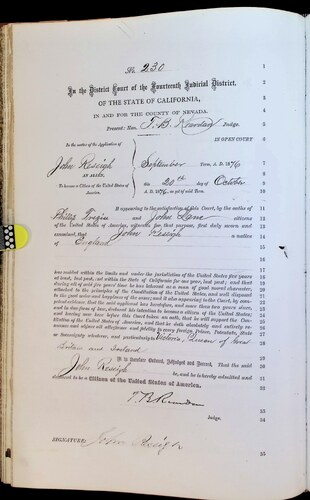 No. 230
In the District Court of the Fourteenth Judicial District,
OF THE STATE OF CALIFORNIA,
IN AND FOR THE COUNTY OF NEVADA.
Present: Hon. T. B. Reardan Judge.
In the matter of the Application of
IN OPEN COURT
John Reseigh
September Term, A. D. 1876
AN ALIEN,
To become a Citizen of the United States of America.
this 20th day of October
A. D. 1876 as yet of said Term.
It appearing to the satisfaction of this Court, by the oaths of
and John Lane citizens
of the United States of America, witnesses for that purpose, first duly sworn and
examined, that John Reseigh a native
of England
has resided within the limits and under the jurisdiction of the United States five years
at least, last past, and within the State of California for one year, last past; and that
during all of said five years' time he has behaved as a man of good moral character,
attached to the principles of the Constitution of the United States, and well disposed
to the good order and happiness of the same; and it also appearing to the Court, by com-
petent evidence, that the said applicant has heretofore, and more than two years since,
and in due form of law, declared his intention to become a citizen of the United States;
and having now here before this Court taken an oath, that he will support the Con-
stitution of the United States of America, and that he doth absolutely and entirely re-
nounce and abjure all allegiance and fidelity to every foreign Prince, Potentate, State
or Sovereignty whatever, and particularly to Victoria, Queen of Great
Britain and Ireland
It is therefore Ordered, Adjudged and Decreed, That the said
John Reseigh be, and he is hereby admitted and
declared to be a Citizen of the United States of America.
T. B. Reardan
Judge.
SIGNATURE: John Reseigh
1
2
3
4
5
6
7
8
9
10
11
12
13
14
15